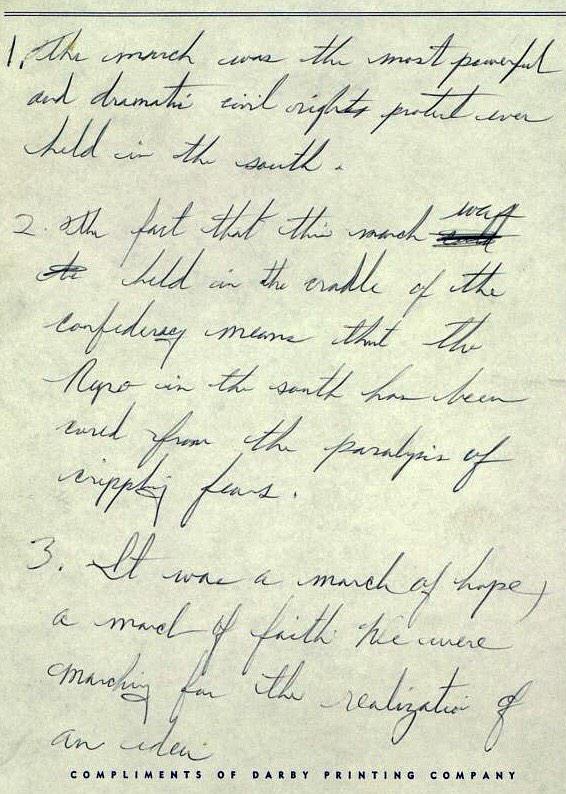 1. The march was the most powerful
and dramatic civil rights protest ever
held in the south.
2. The fact that this march was
held in the cradle of the
confederacy means that the
Negro in the south has been
cured from the paralysis of
crippling fears.
3. It was a march of hope,
a march of faith We were
marching for the realization of
an idea
COMPLIMENTS OF DARBY PRINTING COMPANY